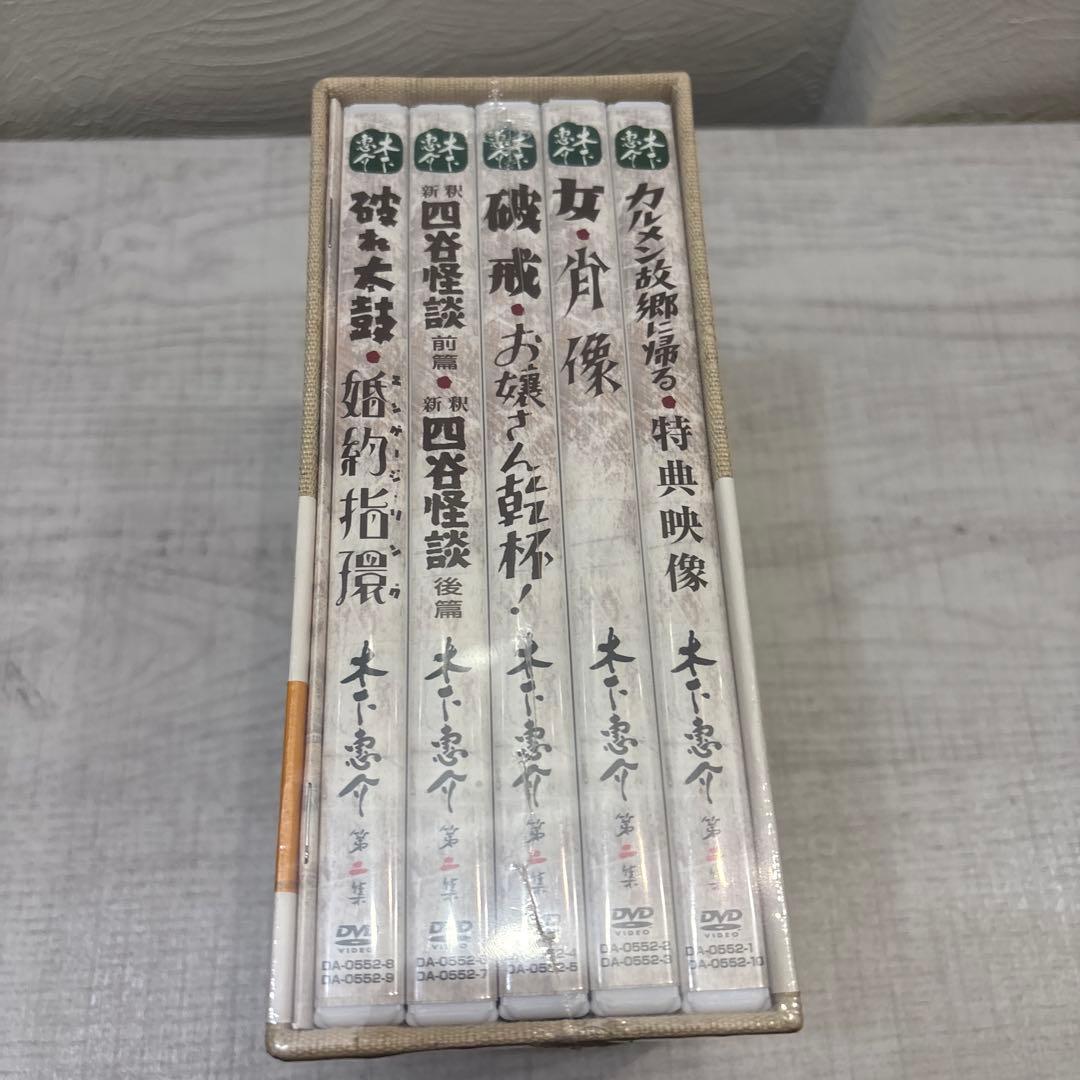 木下惠介
カルメン故郷に帰る・特典映像
木下惠介
第二集
DVD
VIDEO
DA-0552-1
DA-0552-10
木下惠介
女・肖像
木下惠介
第二集
DVD
VIDEO
DA-0552-2
DA-0552-3
木下惠介
破戒・お嬢さん乾杯!
木下惠介
第二集
DA-0552-4
DA-0552-5
木下惠介
新釈 四谷怪談 前篇・新釈 四谷怪談 後篇
木下惠介
第二集
DVD
VIDEO
DA-0552-6
DA-0552-7
木下惠介
破れ太鼓・婚約指環
エンゲージリング
木下惠介
第二集
DVD
VIDEO
DA-0552-8
DA-0552-9